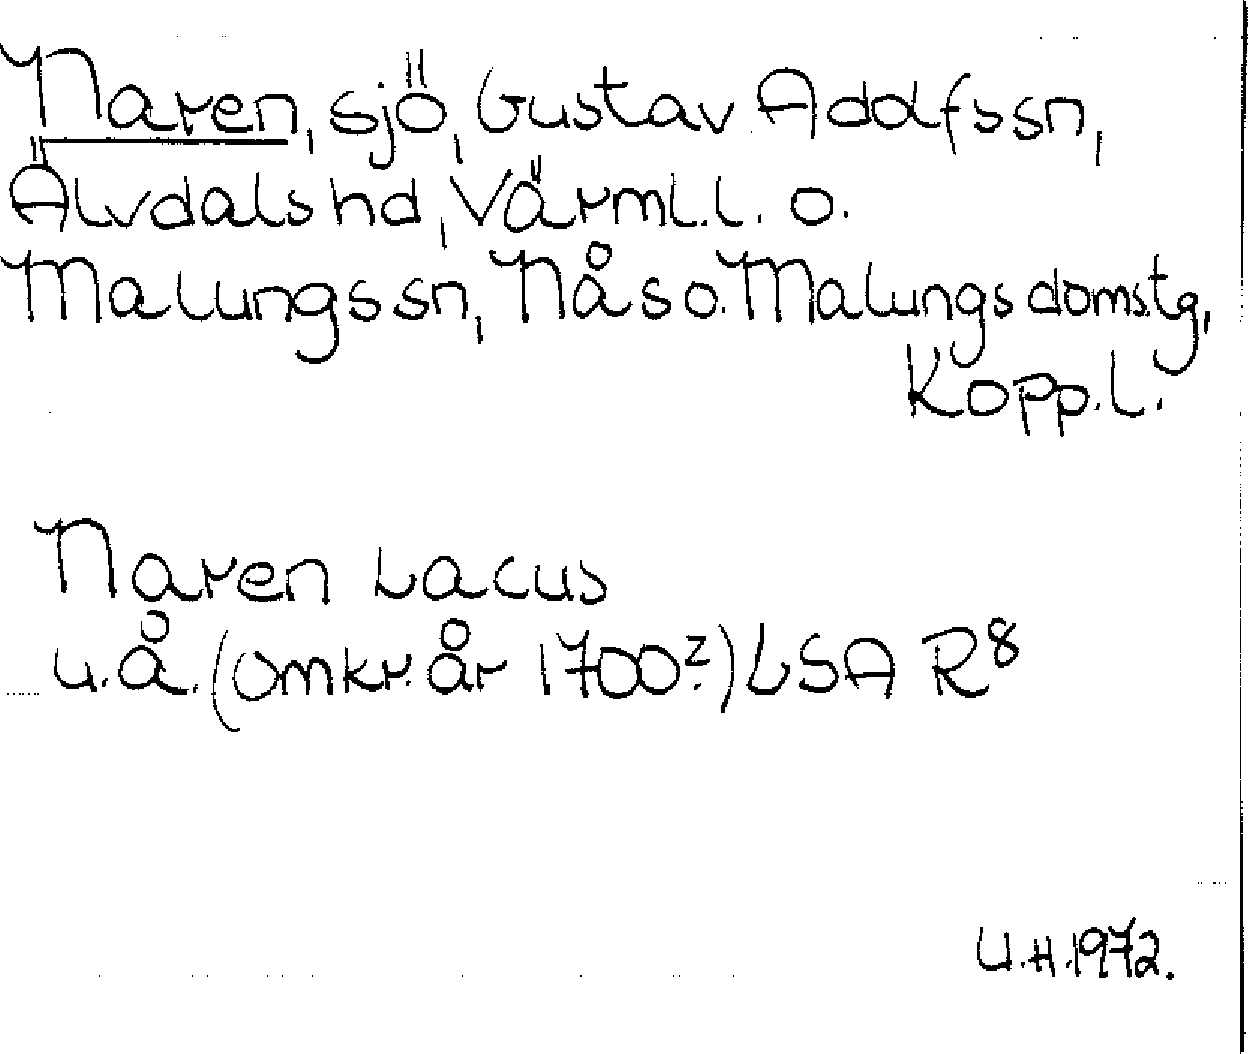 Naren, sjö, Gustav Adolfs sn,
Älvdals hd, Värml. l. o.
Malungs sn, Nås o. Malungs domstg,
Kopp. l.
Naren Lacus
u.å. (omkr. år 1700?) LSA R8
U.H. 1972.